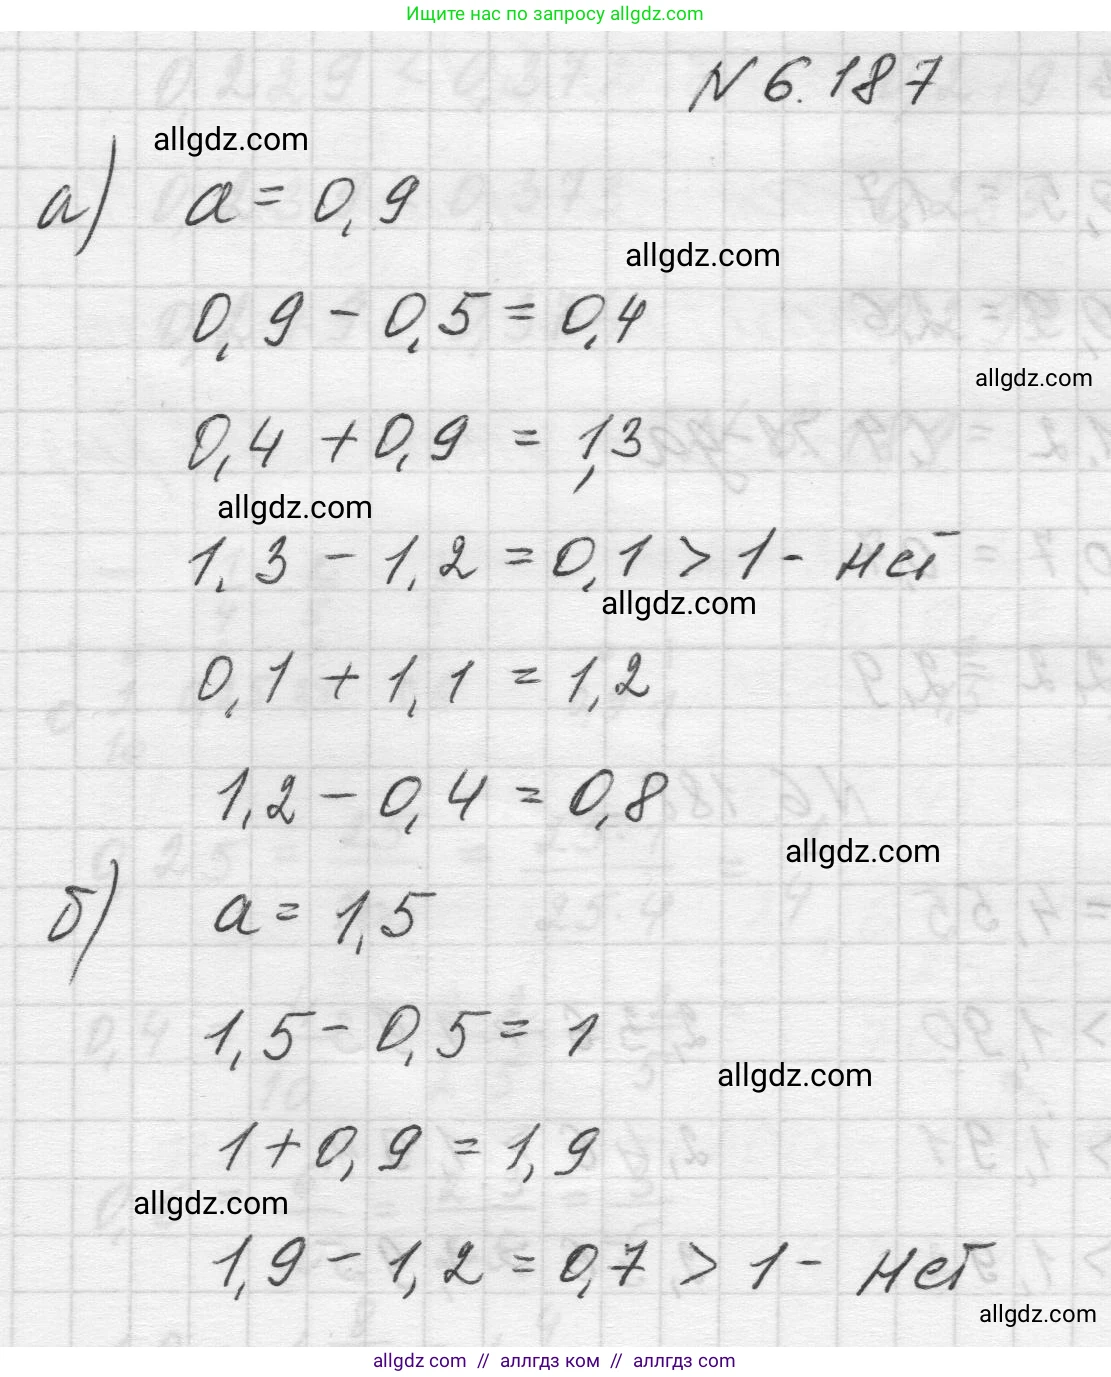 Ищите нас по запросу allgdz.com
N 6.187
allgdz.com
а) a = 0,9
allgdz.com
0,9 - 0,5 = 0,4
allgdz.com
0,4 + 0,9 = 1,3
allgdz.com
1,3 - 1,2 = 0,1 > 1 - нет
allgdz.com
0,1 + 1,1 = 1,2
1,2 - 0,4 = 0,8
allgdz.com
б) a = 1,5
1,5 - 0,5 = 1
allgdz.com
1 + 0,9 = 1,9
allgdz.com
1,9 - 1,2 = 0,7 > 1 - нет
allgdz.com
allgdz.com // аллгдз ком // аллгдз.com